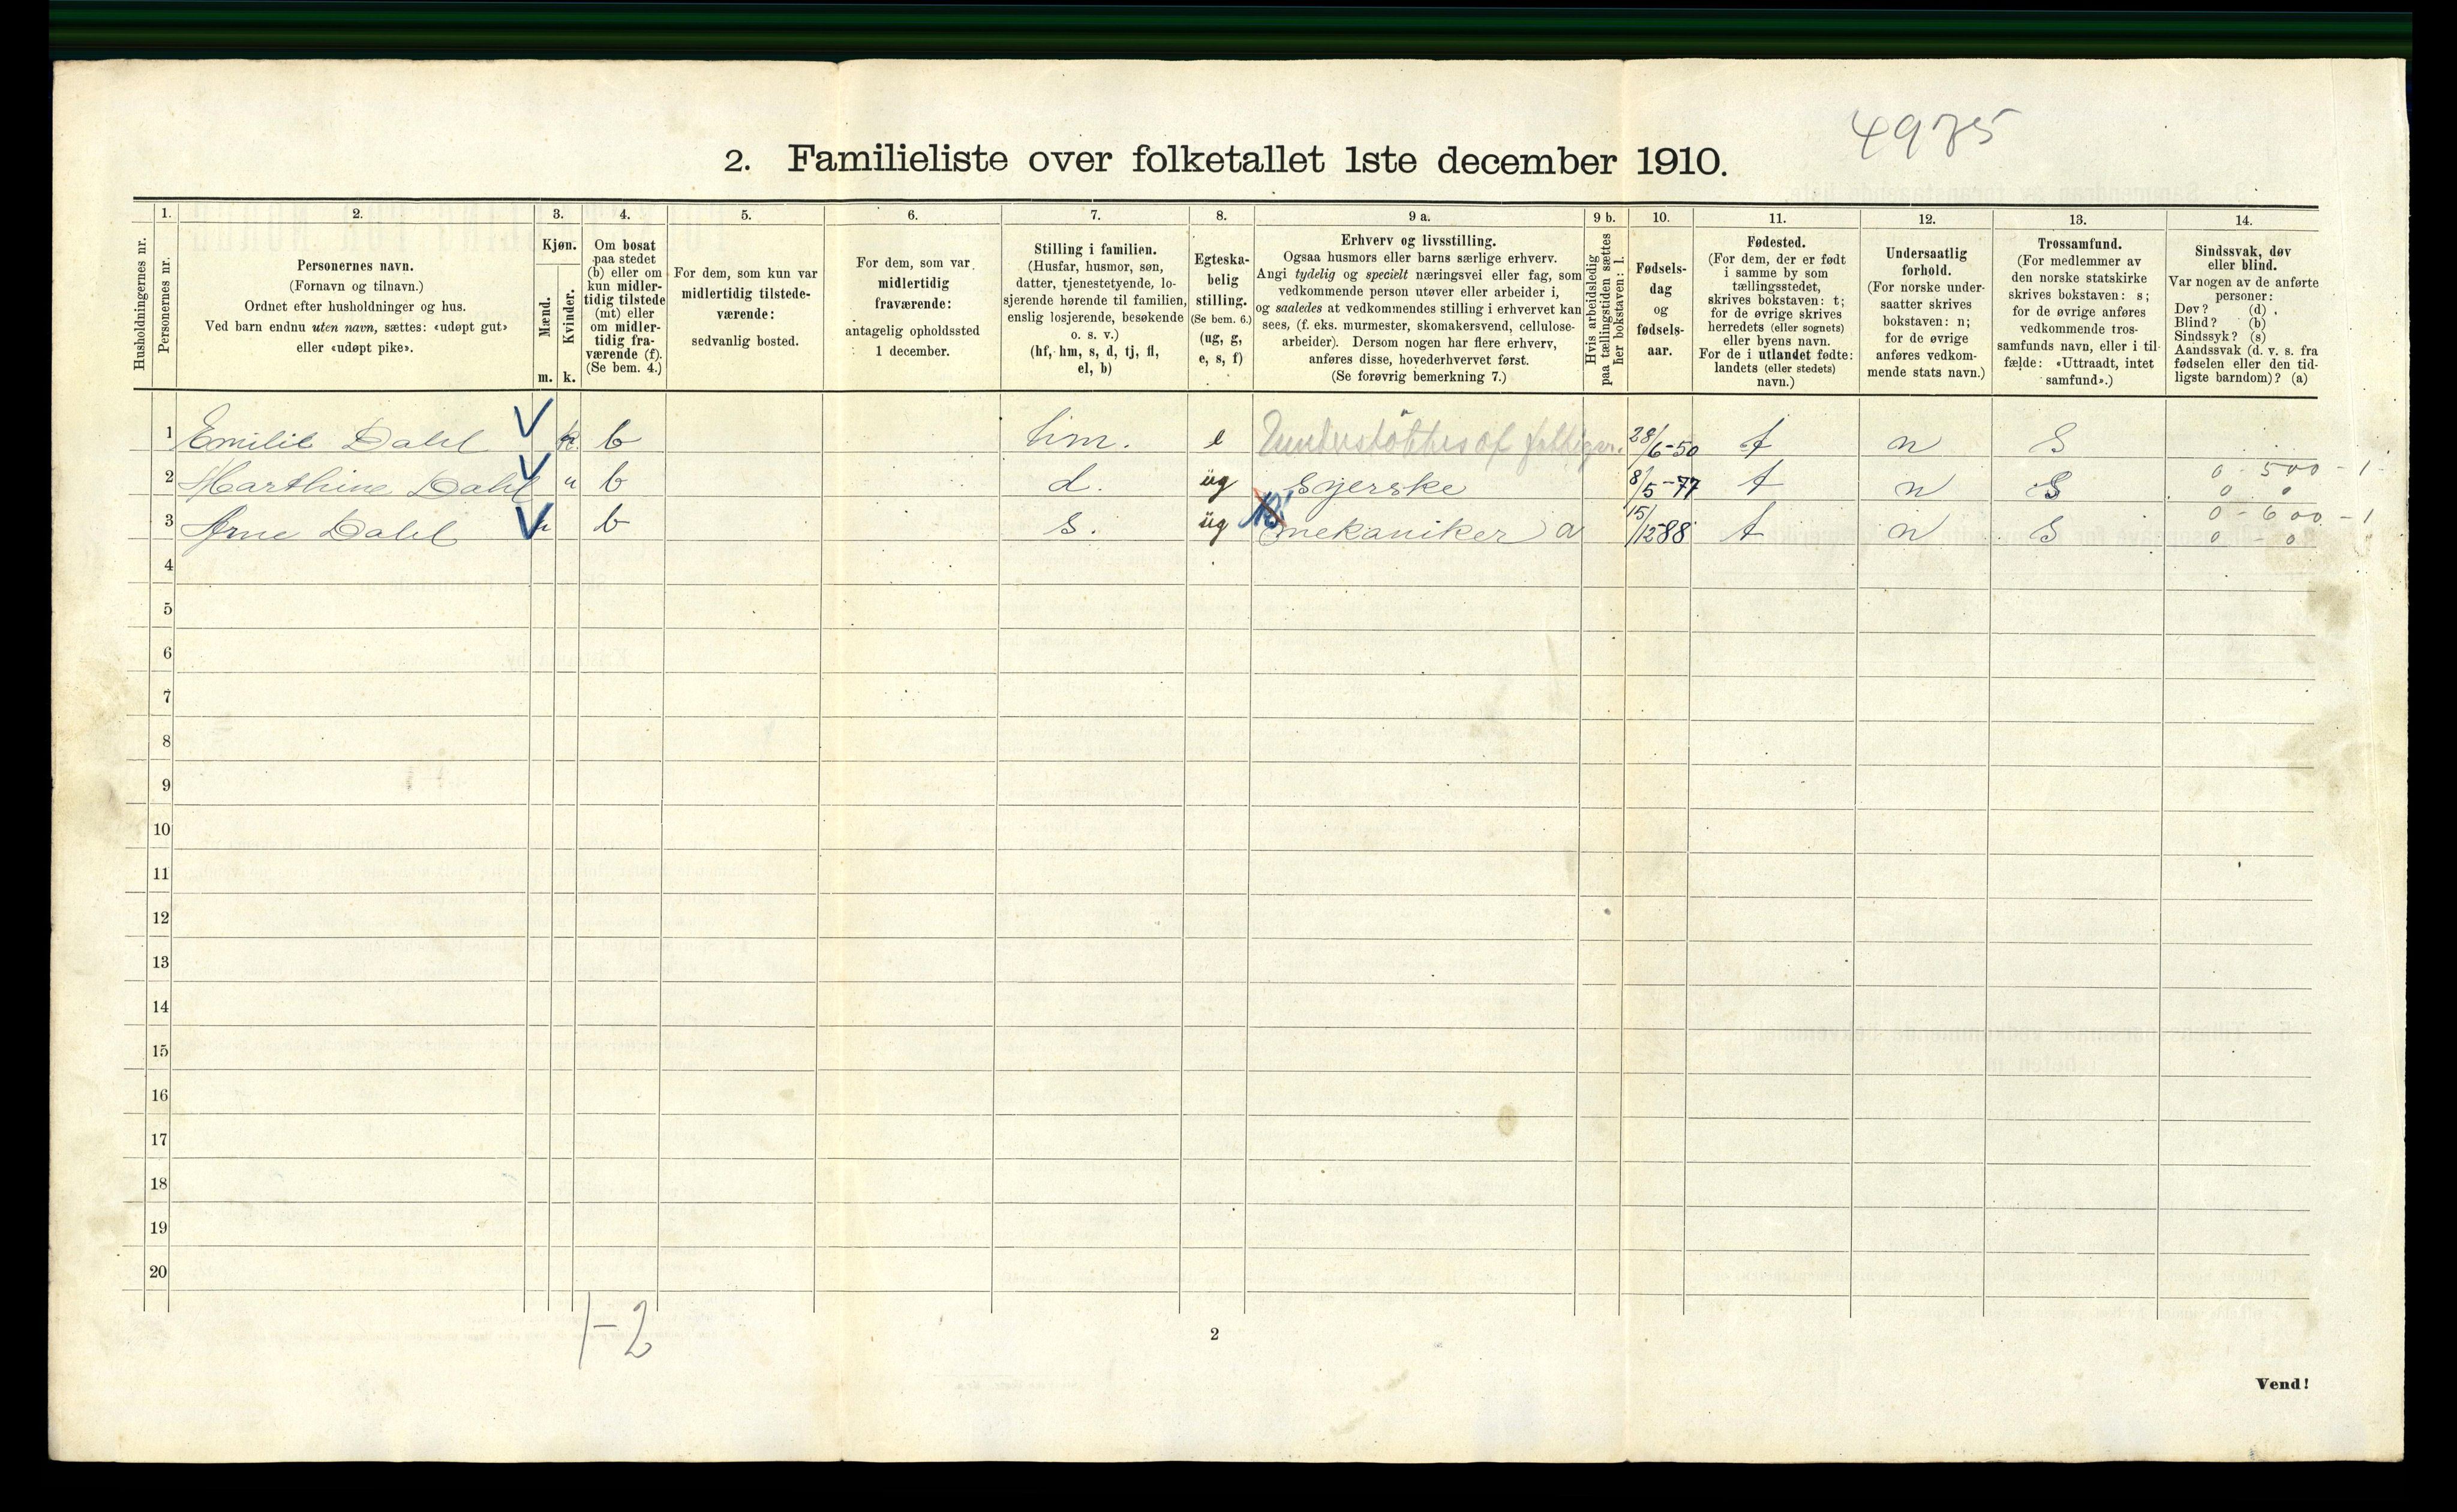 4975
2. Familieliste over folketallet 1ste december 1910.
1. 2. 3. 4. 5. 6. 7. 8. 9 a. 9 b. 10. 11. 12. 13. 14.
Husholdningernes nr.
Personernes nr.
Personernes navn.
(Fornavn og tilnavn.)
Ordnet efter husholdninger og hus.
Ved barn endnu uten navn, sættes: «udøpt gut»
eller «udøpt pike».
Kjøn.
Mænd.
Kvinder.
m. k.
Om bosat
paa stedet
(b) eller om
kun midler-
tidig tilstede
(mt) eller
om midler-
tidig fra-
værende (f).
(Se bem. 4.)
For dem, som kun var
midlertidig tilstede-
værende:
sedvanlig bosted.
For dem, som var
midlertidig
fraværende:
antagelig opholdssted
1 december.
Stilling i familien.
(Husfar, husmor, søn,
datter, tjenestetyende, lo-
sjerende hørende til familien,
enslig losjerende, besøkende
o. s. v.)
(hf, hm, s, d, tj, fl,
el, b)
Egteska-
belig
stilling.
(Se bem. 6.)
(ug, g,
e, s, f)
Erhverv og livsstilling.
Ogsaa husmors eller barns særlige erhverv.
Angi tydelig og specielt næringsvei eller fag, som
vedkommende person utøver eller arbeider i,
og saaledes at vedkommendes stilling i erhvervet kan
sees, (f. eks. murmester, skomakersvend, cellulose-
arbeider). Dersom nogen har flere erhverv,
anføres disse, hovederhvervet først.
(Se forøvrig bemerkning 7.)
Hvis arbeidsledig
paa tællingstiden sættes
her bokstaven: l.
Fødsels-
dag
og
fødsels-
aar.
Fødested.
(For dem, der er født
i samme by som
tællingsstedet,
skrives bokstaven: t;
for de øvrige skrives
herredets (eller sognets)
eller byens navn.
For de i utlandet fødte:
landets (eller stedets)
navn.)
Undersaatlig
forhold.
(For norske under-
saatter skrives
bokstaven: n;
for de øvrige
anføres vedkom-
mende stats navn.)
Trossamfund.
(For medlemmer av
den norske statskirke
skrives bokstaven: s;
for de øvrige anføres
vedkommende tros-
samfunds navn, eller i til-
fælde: «Uttraadt, intet
samfund».)
Sindssvak, døv
eller blind.
Var nogen av de anførte
personer:
Døv? (d)
Blind? (b)
Sindssyk? (s)
Aandssvak (d. v. s. fra
fødselen eller den tid-
ligste barndom)? (a)
1 Emilie Dahl k. b hm. e Understöttes af fattigv. 28/6-50 t n S
2 Marthine Dahl " b d. ug Syerske 8/5-77 t n S 0 - 500 - 1
0 0
3 Arne Dahl b s. ug mekaniker a 15/12 88 t n S 0 - 600 - 1
0 - 0
4
5
6
7
8
9
10
11
12
13
14
15
16
17
18
19
20
1-2
2
Vend!